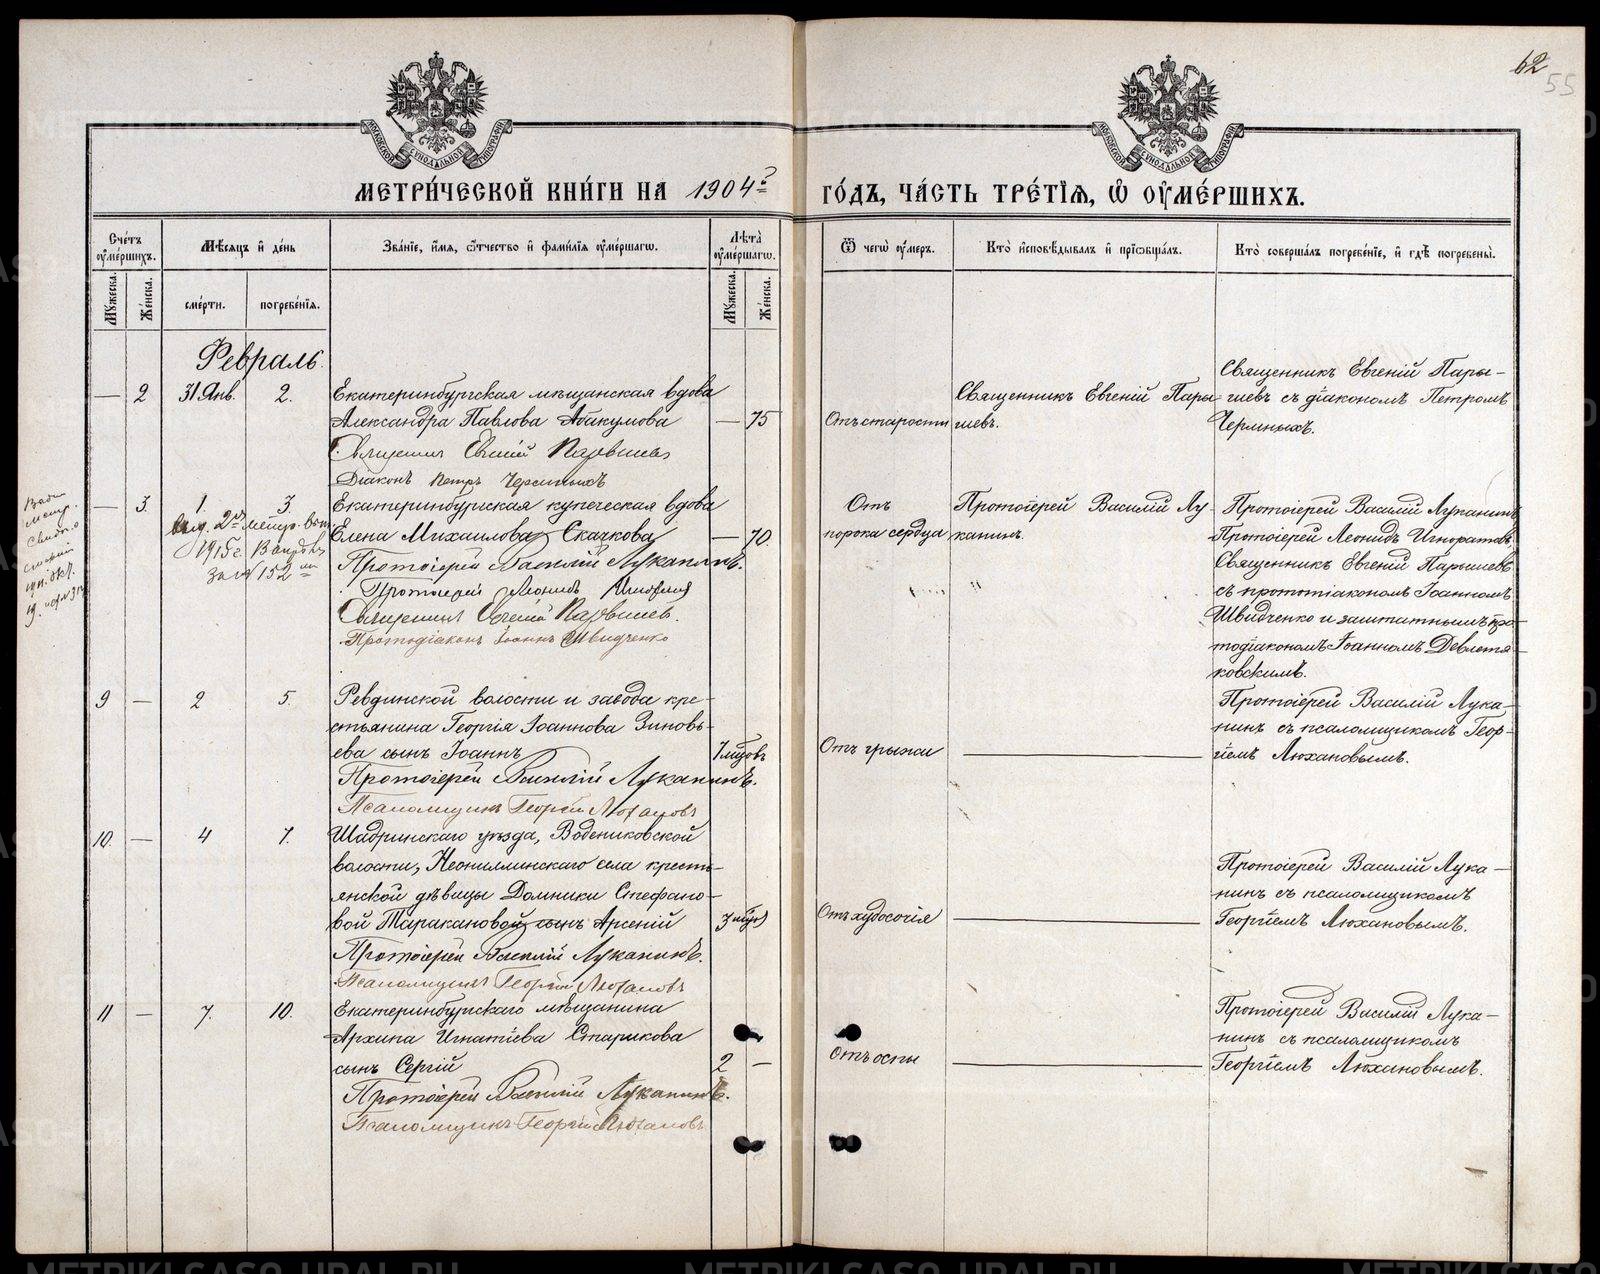 62
55
МОСКОВСКОЙ СѴНОДАЛЬНОЙ ТИПОГРАФІИ
МОСКОВСКОЙ СѴНОДАЛЬНОЙ ТИПОГРАФІИ
МЕТРИ́ЧЕСКОЙ КНИ́ГИ НА 1904 го́дъ, ча́сть тре́тїѧ, ѡ҆ оу҆ме́ршихъ.
Сче́тъ оу҆ме́ршихъ.
Мѣ́сѧцъ и҆ де́нь
Зва́нїе, и҆́мѧ, ѻ҆́тчество и҆ фами́лїѧ оу҆ме́ршагѡ.
Лѣ́та оу҆ме́ршагѡ.
Ѿ чегѡ̀ оу҆́меръ.
Кто̀ и҆сповѣ́дывалъ и҆ прїѡбща́лъ.
Кто̀ соверша́лъ погребе́нїе, и҆ гдѣ̀ погребены̀.
Мꙋ́жеска.
Же́нска.
сме́рти.
погребе́нїѧ.
Мꙋ́жеска.
Же́нска.
Февраль.
— 2 31 Янв. 2. Екатеринбургская мѣщанская вдова
Александра Павлова Абакумова — 75
Священник Евгений Парышевъ
Діаконъ Петръ Черемныхъ
Отъ старости
Священникъ Евгеній Пары-
шевъ.
Священникъ Евгеній Пары-
шевъ съ діакономъ Петромъ
Черемныхъ.
— 3. 1. 3. Екатеринбургская купеческая вдова
Елена Михаилова Скачкова — 70
Протоіерей Василій Луканинъ.
Протоіерей Леонидъ Игноратовъ
Священникъ Евгеній Парышев.
Протодіаконъ Іоаннъ Швидченко
1915 г.
за № 152
Отъ
порока сердца
Протоіерей Василій Лу-
канинъ.
Протоіерей Василій Луканинъ
Протоіерей Леонидъ Игноратовъ
Священникъ Евгеній Парышевъ
съ протодіакономъ Іоанномъ
Швидченко и заштатнымъ про-
тодіакономъ Іоанномъ Девлетя-
ковскимъ.
9 — 2 5. Ревдинской волости и завода кре-
стьянина Георгія Іоаннова Зиновь-
ева сынъ Іоаннъ 7 мцовъ
Протоіерей Василій Луканинъ.
Псаломщикъ Георгій Люхановъ
Отъ грыжи
Протоіерей Василій Лука-
нинъ съ псаломщикомъ Геор-
гіемъ Люхановымъ.
10. — 4 7. Шадринскаго уѣзда, Водениковской
волости, Неонилинскаго села кресть-
янской дѣвицы Домники Стефано-
вой Таракановой сынъ Арсеній 3 мцев
Протоіерей Василій Луканинъ.
Псаломщикъ Георгій Люхановъ
Отъ худосочія
Протоіерей Василій Лука-
нинъ съ псаломщикомъ
Георгіемъ Люхановымъ.
11 — 7. 10. Екатеринбургскаго мѣщанина
Архипа Игнатіева Старикова
сынъ Сергій 2 —
Протоіерей Василій Луканинъ.
Псаломщикъ Георгій Люхановъ
Отъ оспы
Протоіерей Василій Лука-
нинъ съ псаломщикомъ
Георгіемъ Люхановымъ.